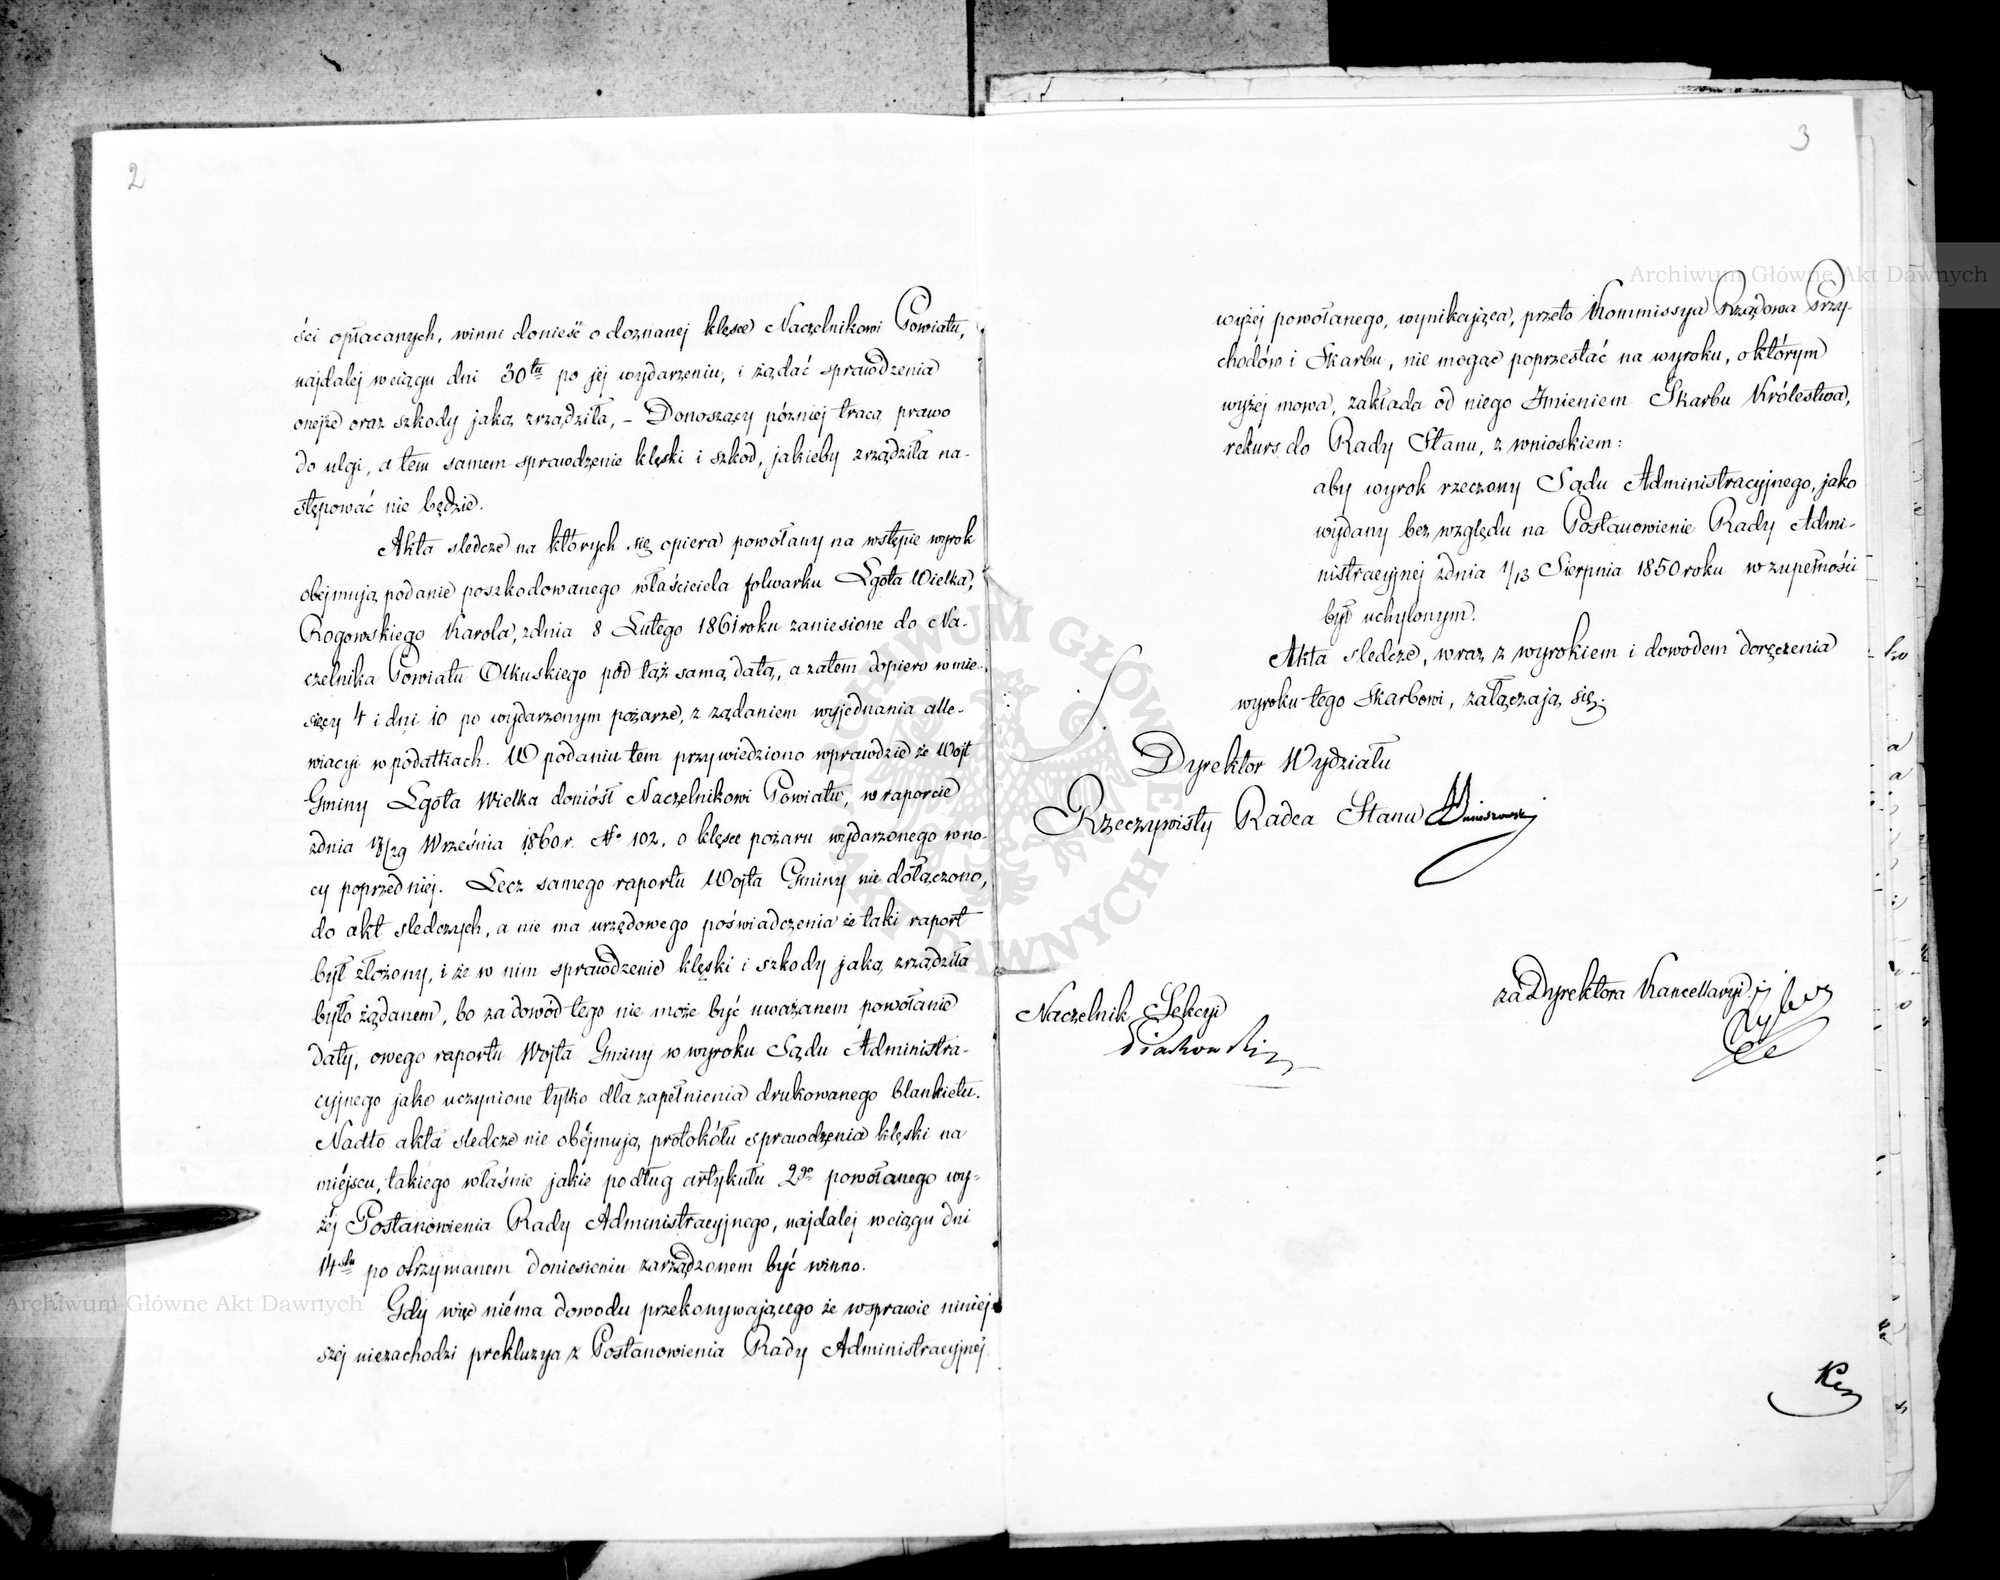 2
ści opłacanych, winni donieść o doznanej klęsce Naczelnikowi Powiatu,
najdalej w ciągu dni 30tu po jej wydarzeniu, i żądać sprawdzenia
onejże oraz szkody jaką zrządziła, – Donoszący później tracą prawo
do ulgi, a tem samem sprawdzenie klęski i szkod, jakieby zrządziła na-
stępować nie będzie.
Akta sledcze na których się opiera powołany na wstępie wyrok
obejmują podanie poszkodowanego właściciela folwarku Lgota Wielka,
Rogowskiego Karola, z dnia 8 Lutego 1861 roku zaniesione do Na-
czelnika Powiatu Olkuskiego pod tąż samą datą, a zatem dopiero w mie-
sięcy 4 i dni 10 po wydarzonym pożarze, z żądaniem wyjednania alle-
wiacyi w podatkach. W podaniu tem przywiedziono wprawdzie że Wojt
Gminy Lgota Wielka doniósł Naczelnikowi Powiatu, w raporcie
z dnia 17/29 Września 1860 r. No 102, o klęsce pożaru wydarzonego w no-
cy poprzedniej. Lecz samego raportu Wojta Gminy nie dołączono,
do akt sledczych, a nie ma urzędowego poświadczenia że taki raport
był złożony, i że w nim sprawdzenie klęski i szkody jaką zrządziła
było żądanem, bo za dowód tego nie może być uważanem powołanie
daty, owego raportu Wojta Gminy w wyroku Sądu Administra-
cyjnego jako uczynione tylko dla zapełnienia drukowanego blankietu.
Nadto akta sledcze nie obejmują protokółu sprawdzenia klęski na
miejscu, takiego właśnie jakie podług artykułu 2go powołanego wy-
żej Postanowienia Rady Administracyjnego, najdalej w ciągu dni
14stu po otrzymanem doniesieniu zarządzonem być winno.
Gdy więc niéma dowodu przekonywającego że w sprawie niniej-
szej niezachodzi prekluzya z Postanowienia Rady Administracyjnej
3
wyżej powołanego, wynikająca, przeto Kommissya Rządowa Przy-
chodów i Skarbu, nie mogąc poprzestać na wyroku, o którym
wyżej mowa, zakłada od niego Imieniem Skarbu Królestwa,
rekurs do Rady Stanu, z wnioskiem:
aby wyrok rzeczony Sądu Administracyjnego, jako
wydany bez względu na Postanowienie Rady Admi-
nistracyjnej z dnia 1/13 Sierpnia 1850 roku w zupełności
był uchylonym.
Akta sledcze, wraz z wyrokiem i dowodem doręczenia
wyroku tego Skarbowi, załączają się.
Dyrektor Wydziału
Rzeczywisty Radca Stanu
za Dyrektora Kancellaryi
Naczelnik Sekcyi
Archiwum Główne Akt Dawnych
Archiwum Główne Akt Dawnych
ARCHIWUM GŁÓWNE AKT DAWNYCH